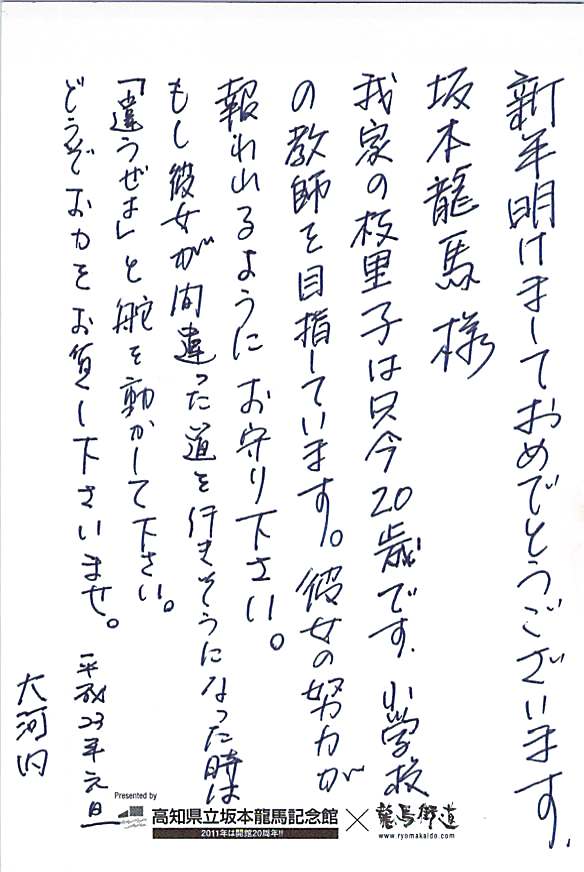 新年明けましておめでとうございます.
坂本龍馬様
我家の枝里子は只今20歳です. 小学校
の教師を目指しています。彼女の努力が
報われるようにお守り下さい。
もし彼女が間違った道を行きそうになった時は
「違うぜよ」と舵を動かして下さい。
どうぞお力をお貸し下さいませ。
平成23年元旦
大河内
Presented by
高知県立坂本龍馬記念館
2011年は開館20周年!!
×
龍馬街道
www.ryomakaido.com